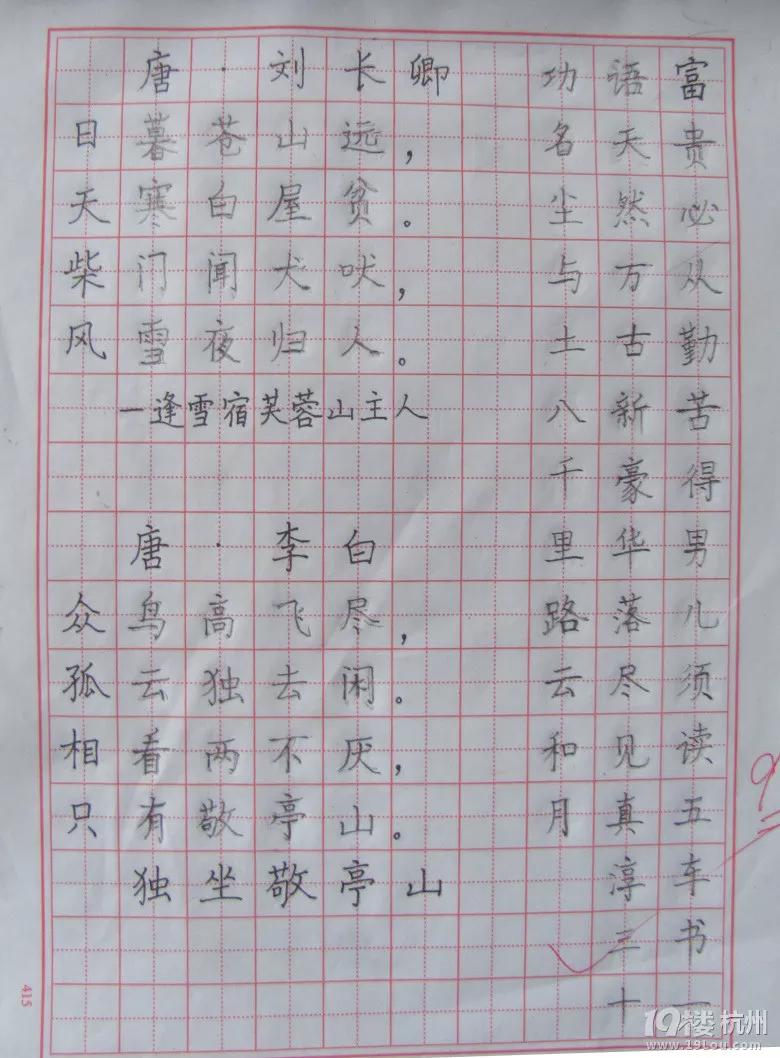 唐·刘长卿
日暮苍山远，
天寒白屋贫。
柴门闻犬吠，
风雪夜归人。
一逢雪宿芙蓉山主人
唐·李白
众鸟高飞尽，
孤云独去闲。
相看两不厌，
只有敬亭山。
独坐敬亭山
富贵必从勤苦得男儿须读五车书一
语天然万古新豪华落尽见真淳三十
功名尘与土八千里路云和月
415
19楼 杭州
www.19lou.com